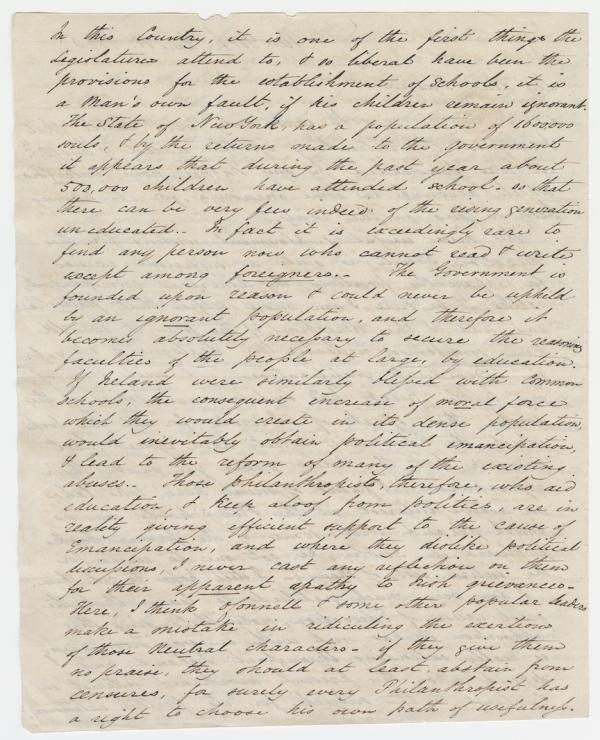 In this Country, it is one of the first things the
Legislatures attend to, & so liberal have been the
provisions for the establishment of schools, it is
a man's own fault, if his children remain ignorant.
The State of New York, has a population of 1600000
souls, & by the returns made to the government
it appears that during the past year about
500,000 children have attended school - so that
there can be very few indeed of the rising generation
un-educated.. In fact it is exceedingly rare to
find any person now who cannot read & write
except among foreigners.. The Government is
founded upon reason & could never be upheld
by an ignorant population, and therefore it
becomes absolutely necessary to secure the reasoning
faculties of the people at large, by education.
If Ireland were similarly blessed with common
schools, the consequent encrease of moral force
which they would create in its dense population,
would inevitably obtain political emancipation,
& lead to the reform of many of the existing
abuses.. Those philanthropists, therefore, who aid
education, & keep aloof from politics, are in
reality giving efficient support to the cause of
Emancipation, and where they dislike political
discussions, I never cast any reflection on them
for their apparent apathy to Irish grievances -
Here, I think O'Connell & some other popular leaders
make a mistake in ridiculing the exertions
of those Neutral characters - if they give them
no praise, they should at least abstain from
censures, for surely every Philanthropist has
a right to choose his own path of usefulness.